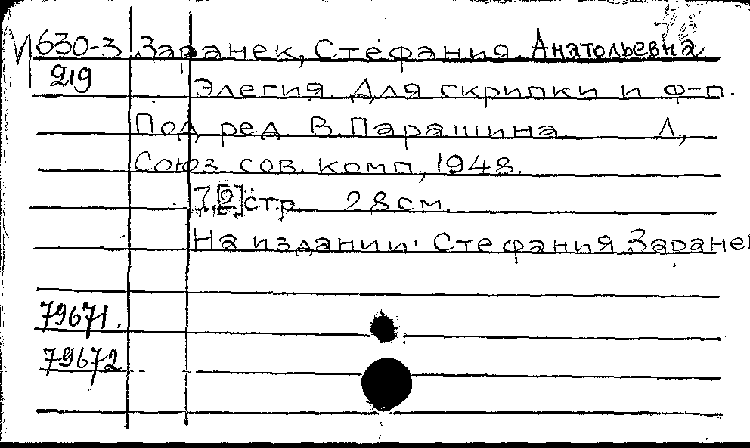 М630-3 Заранек, Стефания Анатольевна
219 Элегия. Для скрипки и ф-п.
Под ред. В. Парашина Л,
Союз сов. комп, 1948.
7,[2] стр 28 см.
На издании: Стефания Заранек
79671.
79672